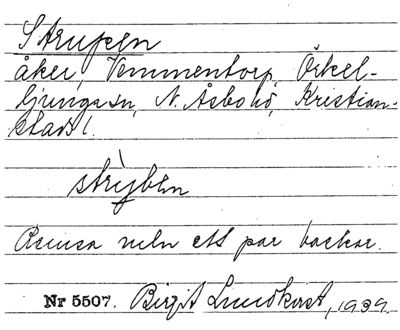 Strupen
åker, Vemmentorp, Örkel-
ljunga sn, N. Åsbo hd, Kristian-
stads l.
strỳbən
Remsa meln ett par backar.
Nr 5507. Birgit Lundkvist, 1939.